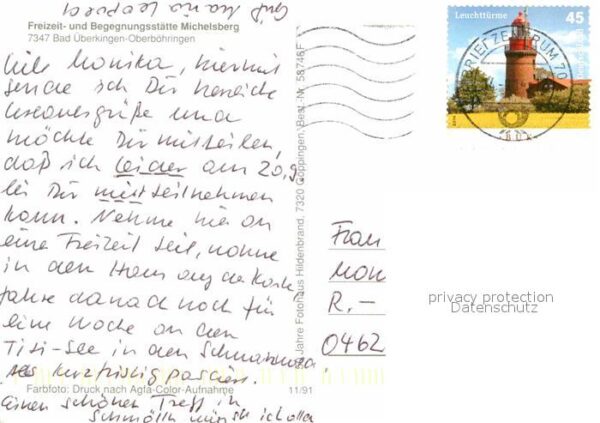 Freizeit- und Begegnungsstätte Michelsberg
7347 Bad Überkingen-Oberböhringen
Monika, hiermit
sende ich Dir herzliche
und
möchte Dir mitteilen,
daß ich leider am 20.9.
bei Dir nicht teilnehmen
kann. Nehme hier an
eine Freizeit teil, wohne
in dem Haus auf der Karte,
fahre danach noch für
eine Woche an den
Titi-See in den Schwarzwald
kurzfristig
Farbfoto: Druck nach Agfa-Color-Aufnahme 11/91
einen schönen Treff in
Schmölln wünsche ich allen
Jahre Fotohaus Hildenbrand, 7320 Göppingen, Best.-Nr. 58746F
Leuchttürme 45
BRIEFZENTRUM 70
Frau
Mon
R.-
0462
privacy protection
Datenschutz